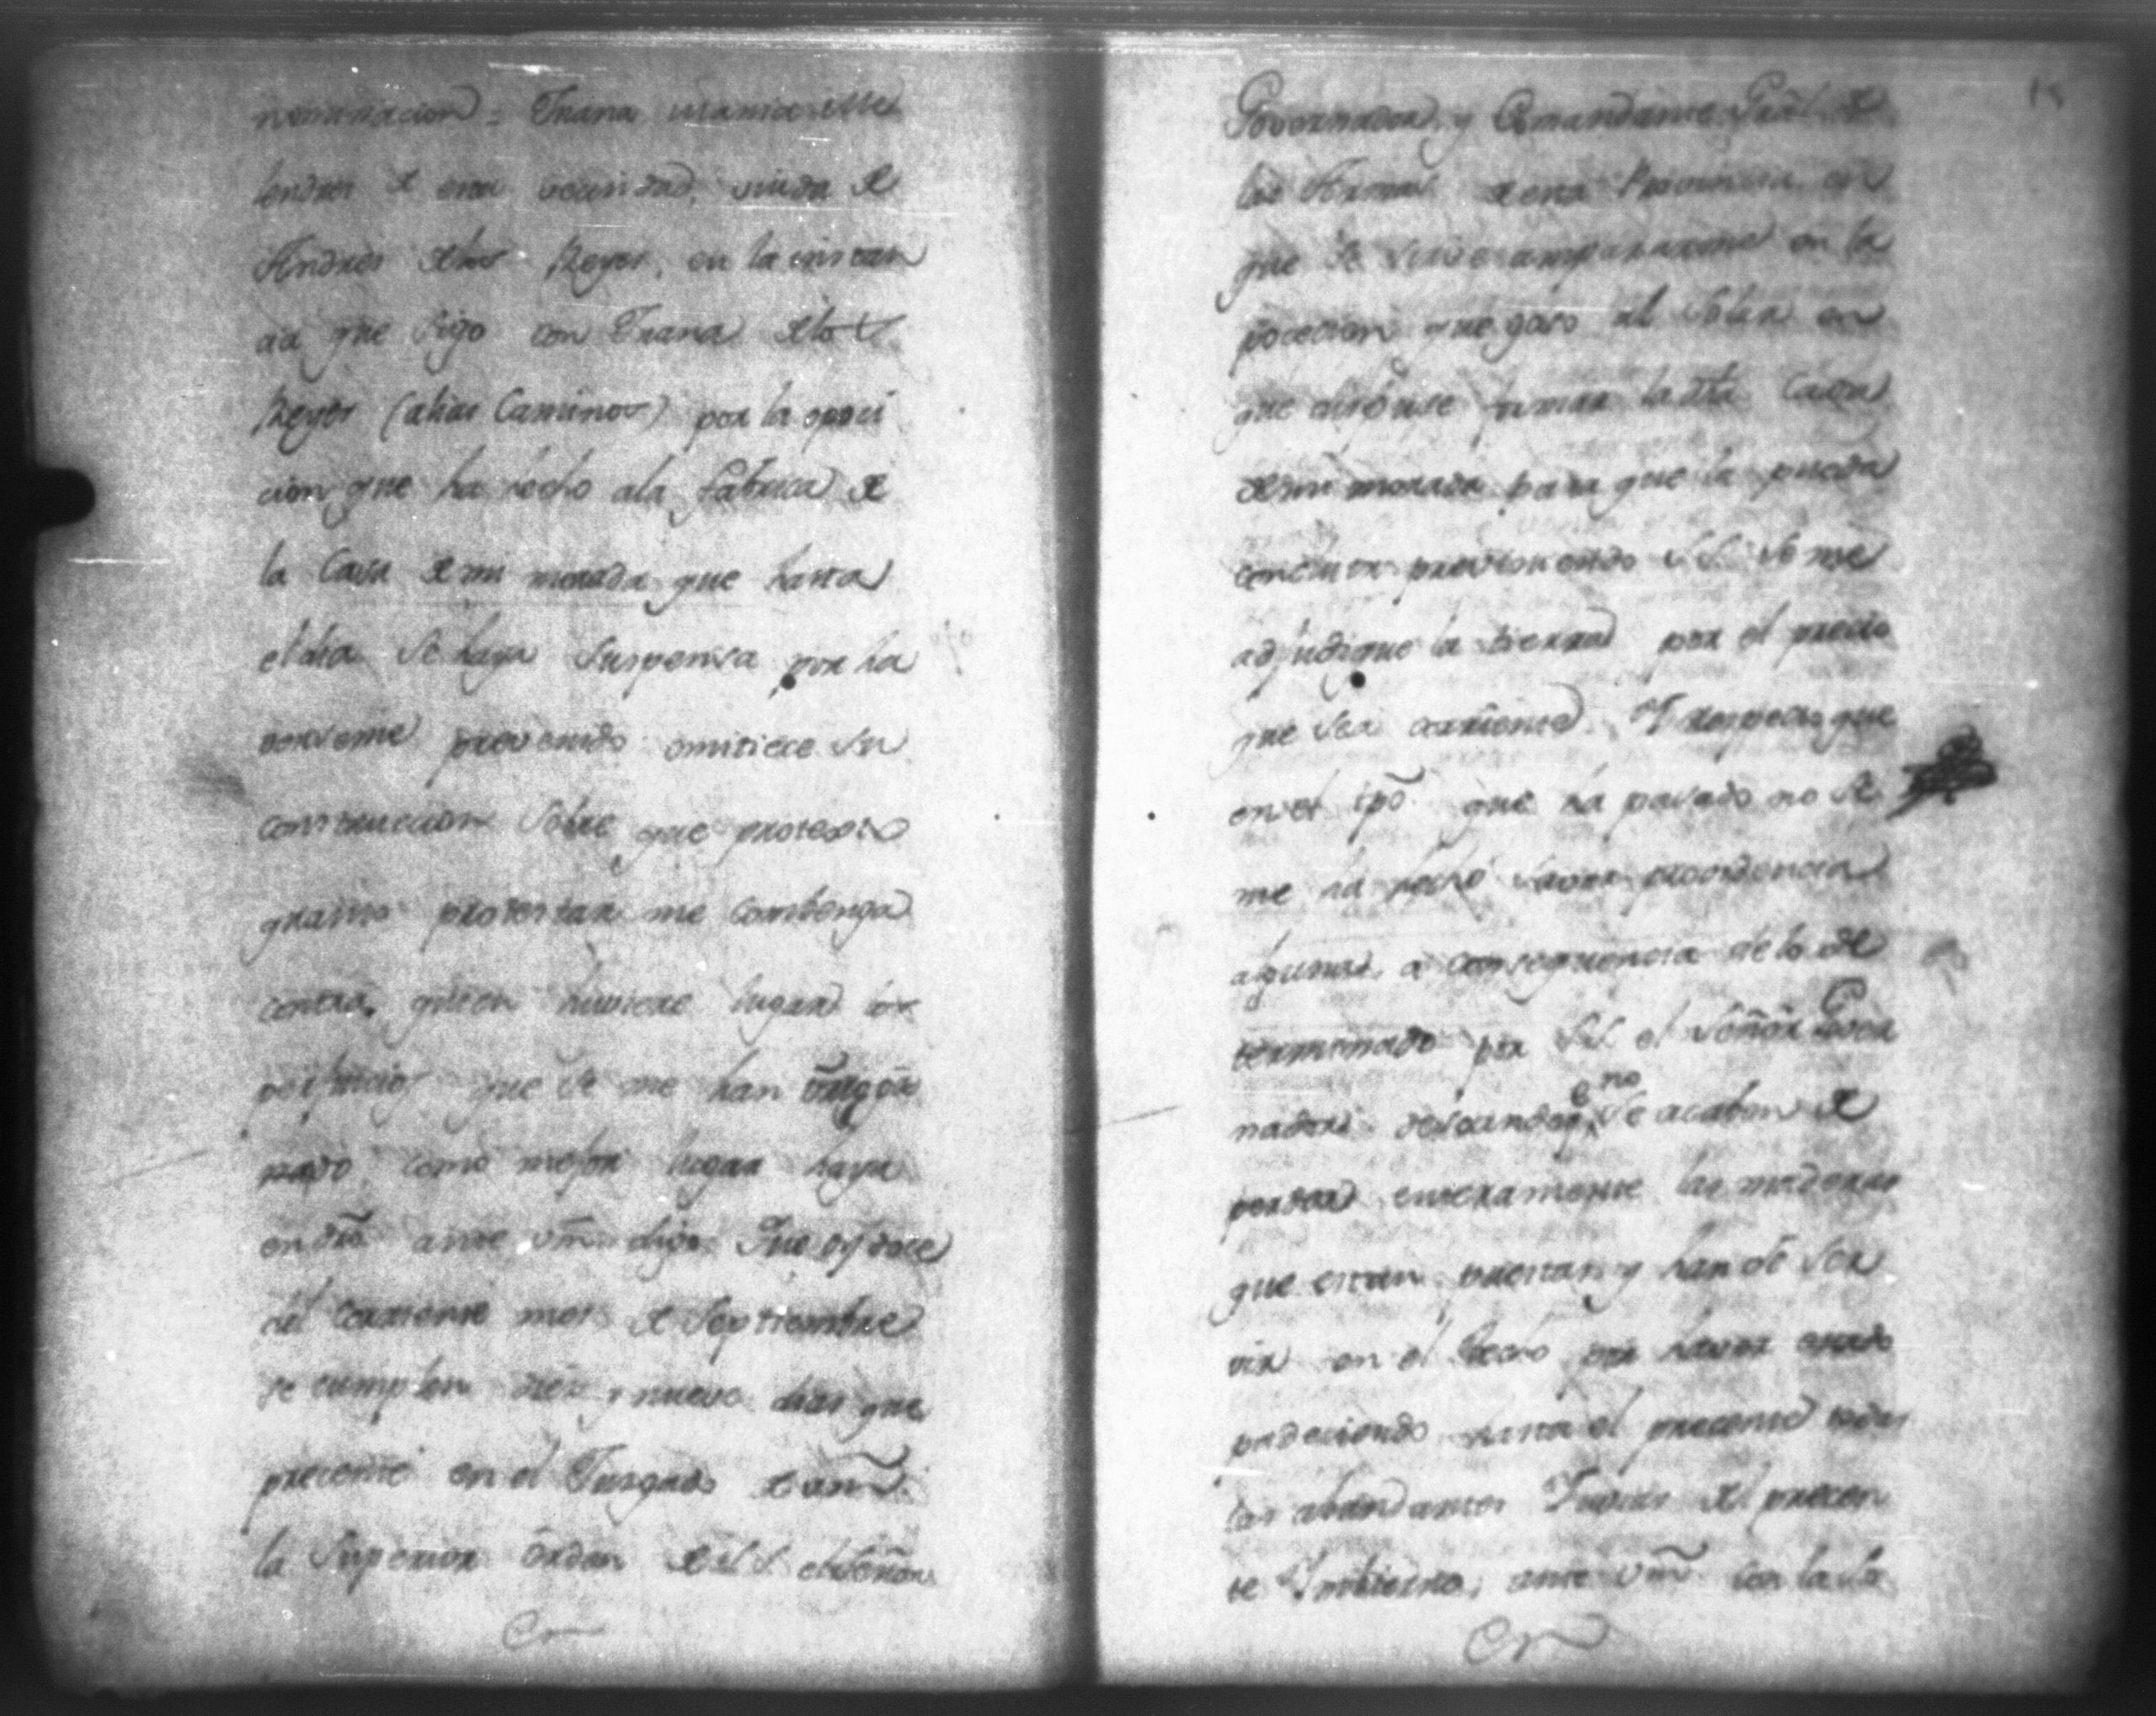 nominacion = Juana maria Me
lendres de esta vecindad, viuda de
Andres de los Reyes, en la instan
cia que sigo con Juana de los
Reyes (alias Caminos) por la oposi
cion que ha hecho ala fabrica de
la Casa de mi morada que hasta
el dia se haya suspensa por ha
verseme prevenido omitiece su
construccion sobre que protexto
protestar me combenga
contra quien huviere lugar los
perjuicios que se me han
rado como mejor lugar haya
en dro ante Vm digo Que oy doce
del corriente mes de Septiembre
se cumplen diez y nueve dias que
precente en el Jusgado de Vm
la Superior orden de S.S. el Señor
Governador y Comandante Gral de
las Armas de esta Provincia en
que se sirve ampararme en la
pocecion que goso al Solar en
que dispuse formar la dha Casa
de mi morada para que la pueda
concluir previniendo S.S. se me
adjudique la tierra por el precio
que sea corriente. Y respecto que
en el tpo que ha pasado no se
me ha hecho saver providencia
alguna a consequencia de lo de
terminado por S.S. el Señor Gover
nador deseando q.e no se acaben de
perder enteramente las maderas
que estan puestas y han de ser
vir en el techo por haver estado
padeciendo hasta el precente todas
las abundantes Lluvias del precen
te Imbierno; ante Vm con la Sa